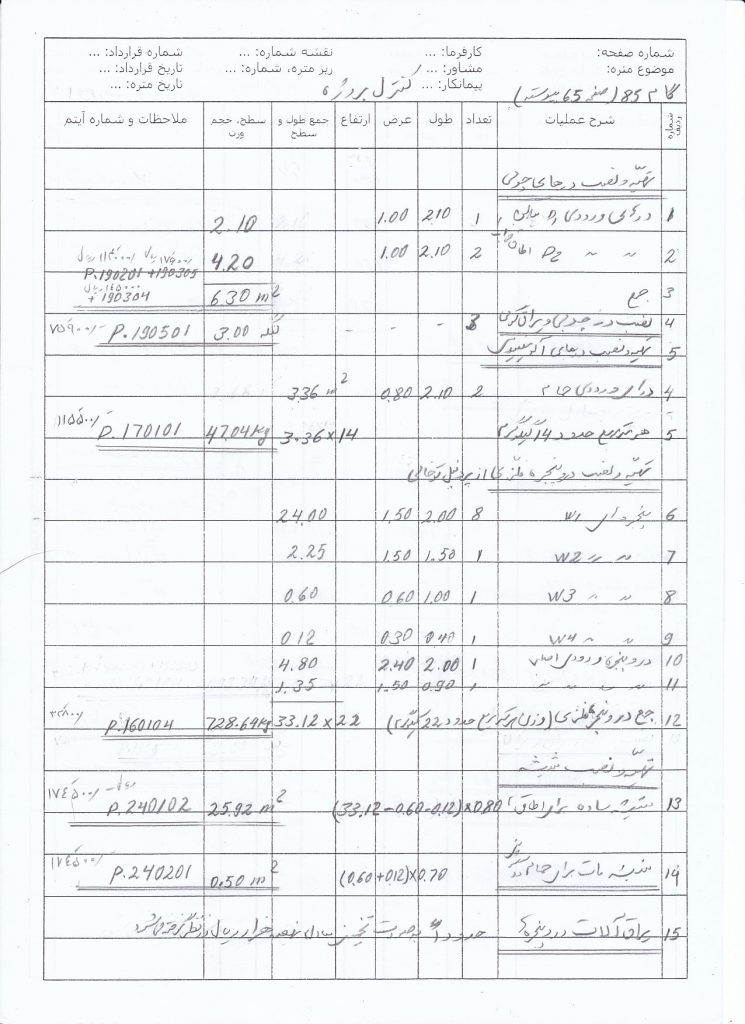 شماره صفحه: کارفرما: ... نقشه شماره: ... شماره قرارداد: ...
موضوع متره: مشاور: ... ریز متره، شماره: ... تاریخ قرارداد: ...
پیمانکار: ... تاریخ متره: ...
گام 85 (صفحه 65 پیوسته) کنترل پروژه
شماره ردیف شرح عملیات تعداد طول عرض ارتفاع جمع طول و سطح سطح، حجم وزن ملاحظات و شماره آیتم
تهیه و نصب درهای چوبی
1 درهای ورودی D1 1 2.10 1.00 2.10
2 〃 〃 D2 اطاق 2 2.10 1.00 4.20
P.190201 + 190305
3 جمع 6.30 m2 + 190304
4 نصب در چوبی و یراق کوبی 3 - - - 3.00 لنگه P.190501 75900/-
5 تهیه و نصب درهای آلومینیومی
4 درهای ورودی حمام 2 2.10 0.80 3.36 m2
5 هر متر مربع حدود 14 کیلوگرم 3.36x14 47.04 Kg P.170101 115500/-
تهیه و نصب در و پنجره فلزی از پروفیل توخالی
6 پنجره های W1 8 2.00 1.50 24.00
7 〃 〃 W2 1 1.50 1.50 2.25
8 〃 〃 W3 1 1.00 0.60 0.60
9 〃 〃 W4 1 0.40 0.30 0.12
10 در و پنجره ورودی اصلی 1 2.00 2.40 4.80
11 〃 〃 〃 〃 1 0.90 1.50 1.35
12 جمع در و پنجره فلزی (وزن هر متر مربع حدود 22 کیلوگرم) 33.12 x 22 728.64 Kg P.160104
تهیه و نصب شیشه
13 شیشه ساده برای اطاق ها (33.12 - 0.60 - 0.12) x 0.80 25.92 m2 P.240102 174500/-
14 شیشه مات برای حمام (0.60 + 0.12) x 0.70 0.50 m2 P.240201 174500/-
15 یراق آلات در و پنجره ها حدوداً بصورت تخمین معادل هزار ریال در نظر گرفته می شود